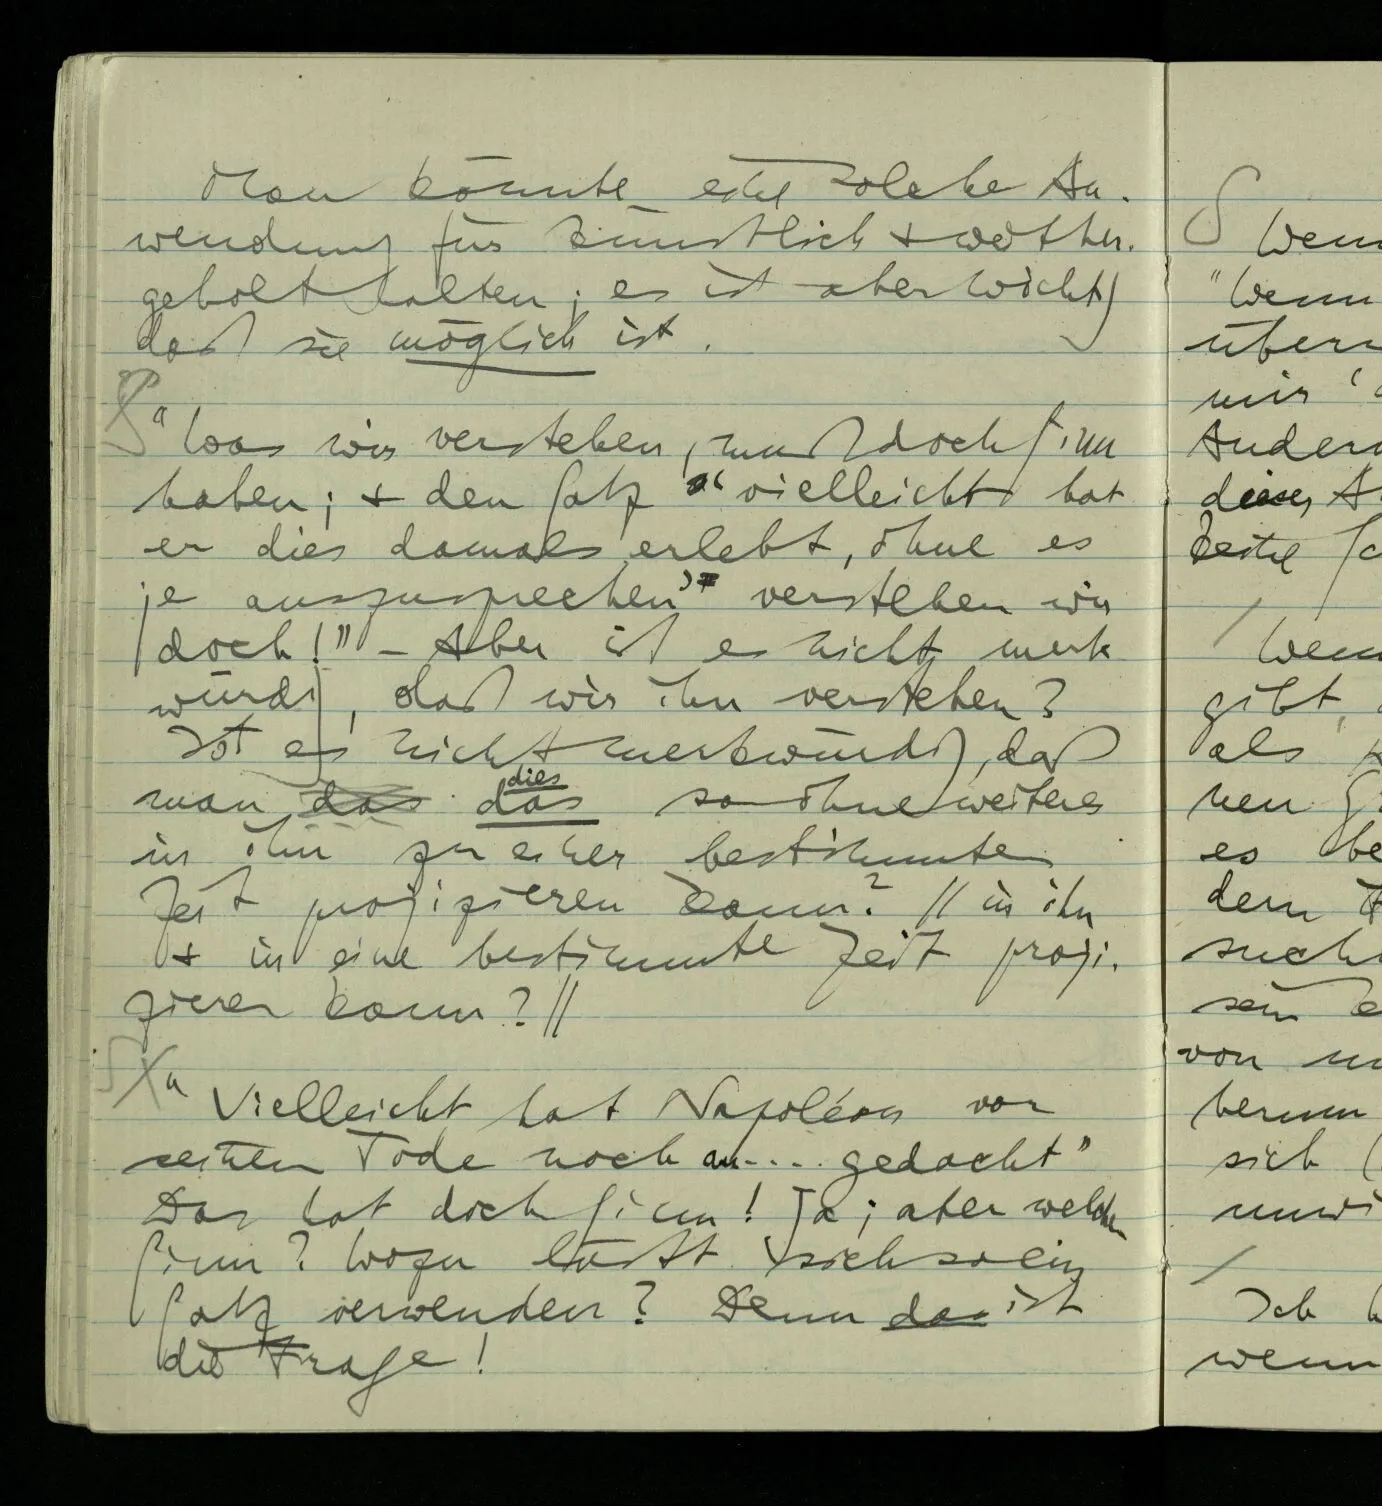 Man könnte eine solche An-
wendung für künstlich & weither-
geholt halten; es ist aber wichtig
daß sie möglich ist.
"Was wir verstehen, muß doch Sinn
haben; & den Satz "vielleicht hat
er dies damals erlebt, ohne es
je auszusprechen" verstehen wir
doch!" – Aber ist es nicht merk
würdig, daß wir ihn verstehen?
Ist es nicht merkwürdig, daß
dies
man das das so ohne weiteres
in ihn zu einer bestimmten
Zeit projizieren kann? // in ihn
& in eine bestimmte Zeit proji-
zieren kann? //
"Vielleicht hat Napoléon vor
seinem Tode noch an.... gedacht"
Das hat doch Sinn! Ja; aber welchen
Sinn? Wozu läßt sich so ein
Satz verwenden? Denn das ist
die Frage!
S Wenn
"Wenn
über
mir
Andern
dieses
keine
Wenn
gibt,
als
nen
es be
dem
such
sein
von
sich
unwi
Ich
wenn